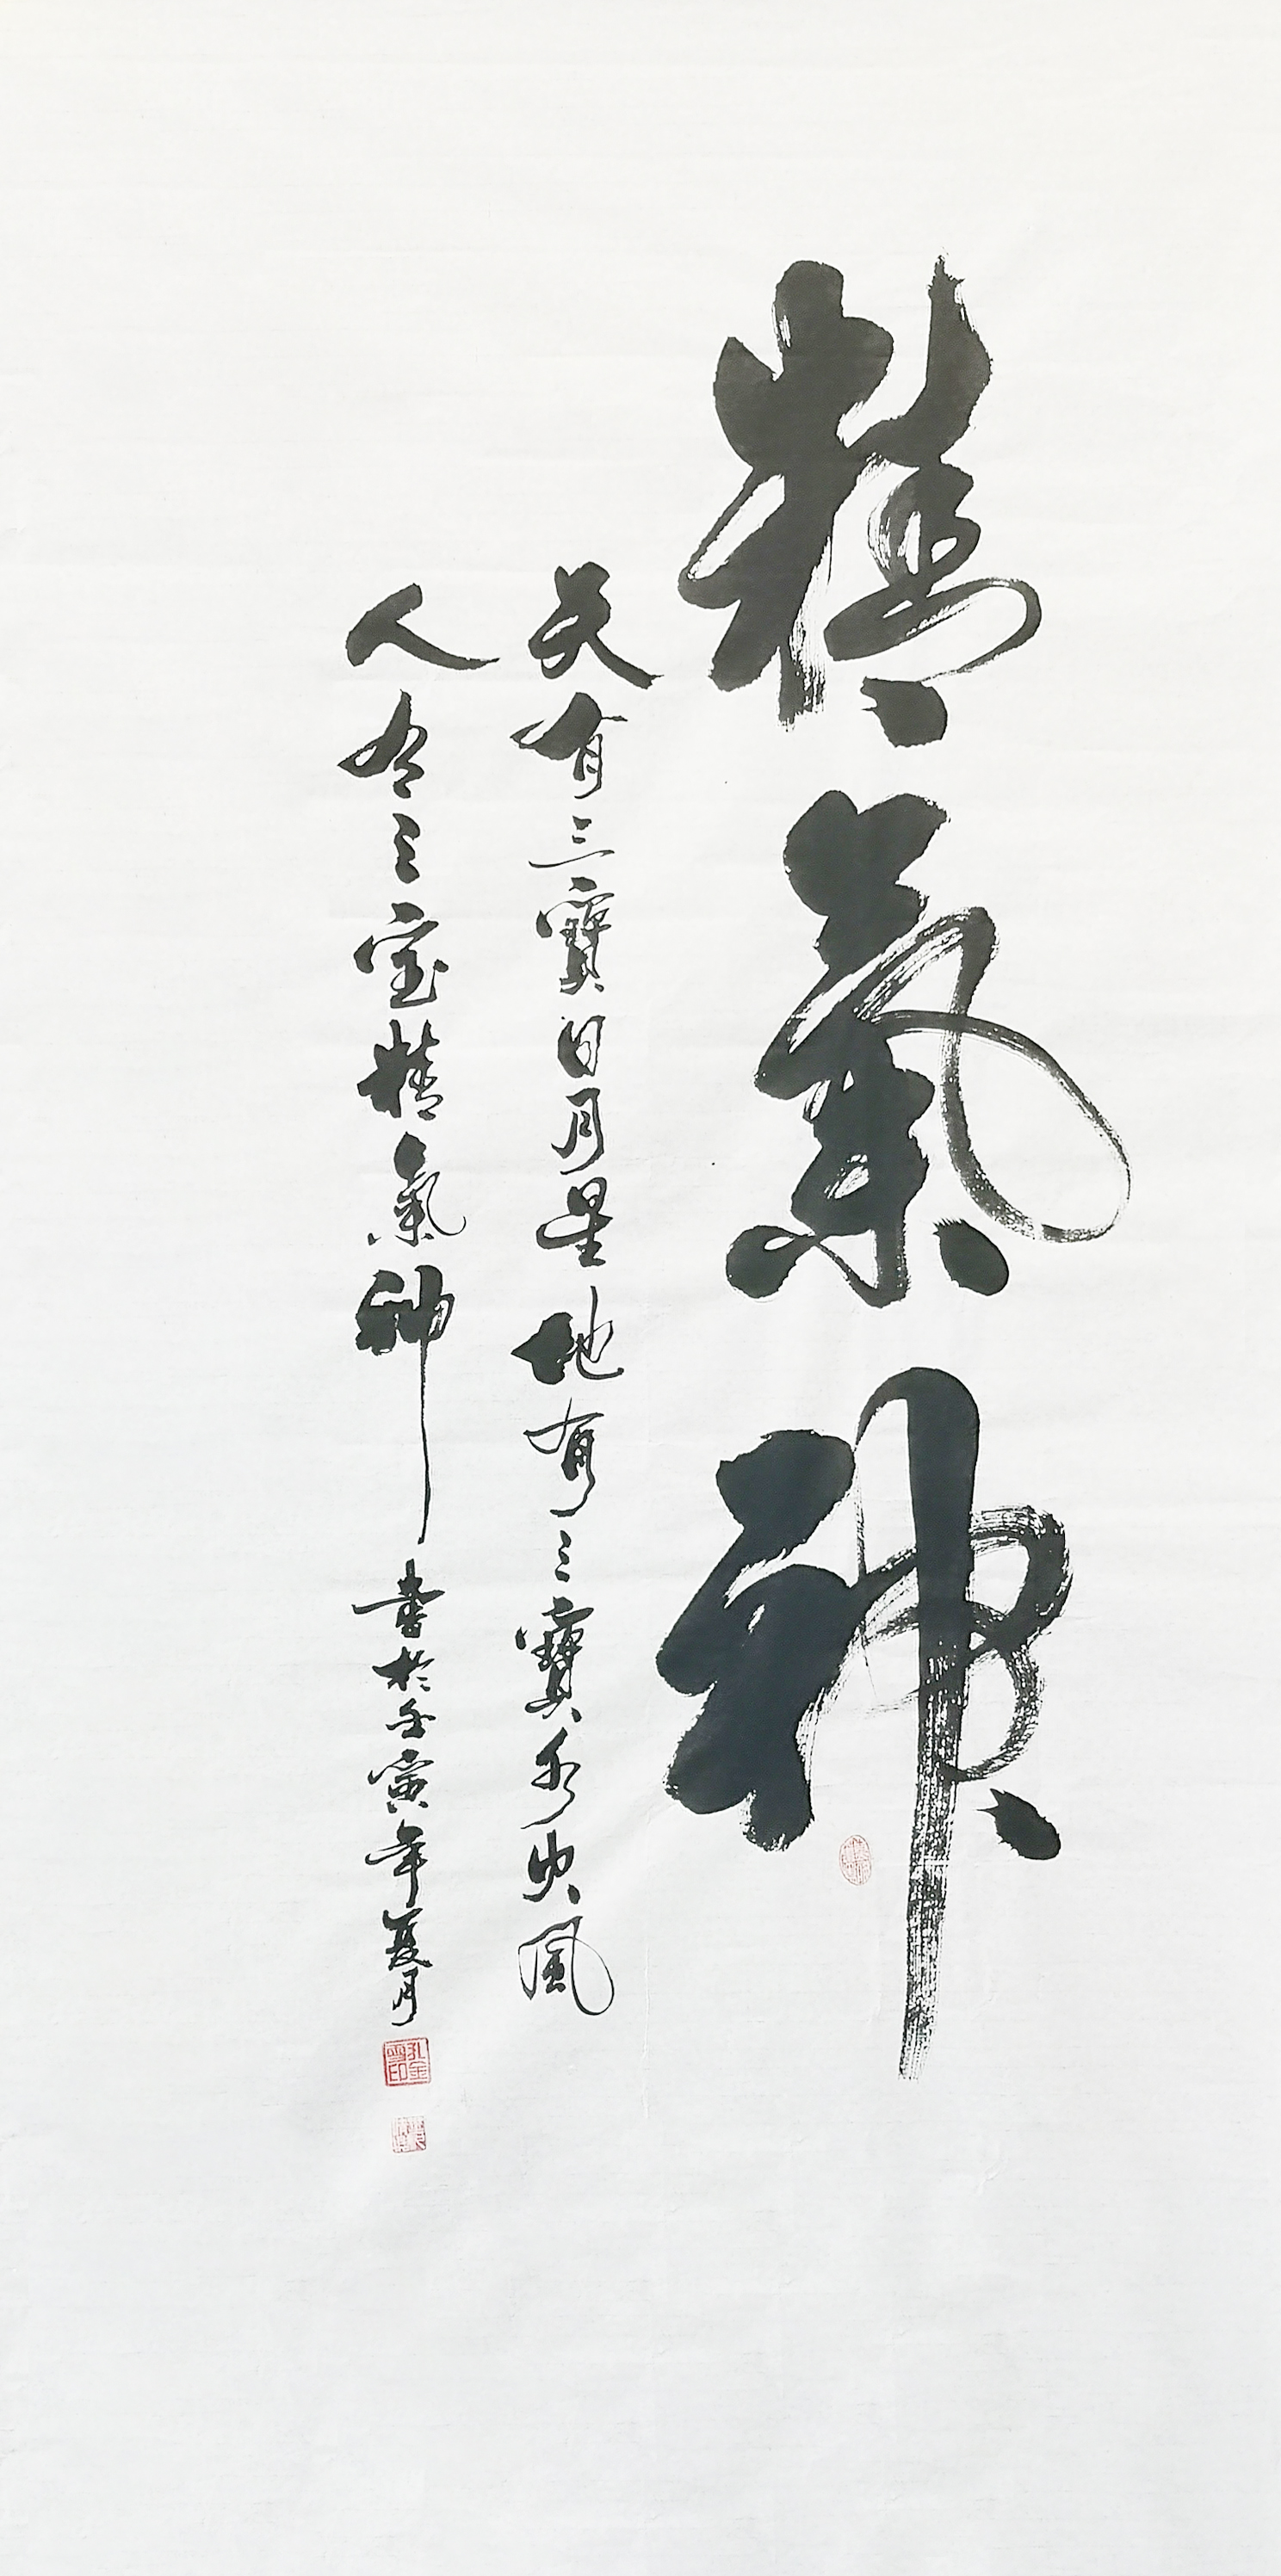 精氣神
天有三寶日月星地有三寶水火風
人有三宝精氣神書於壬寅年夏月
孔金雪印